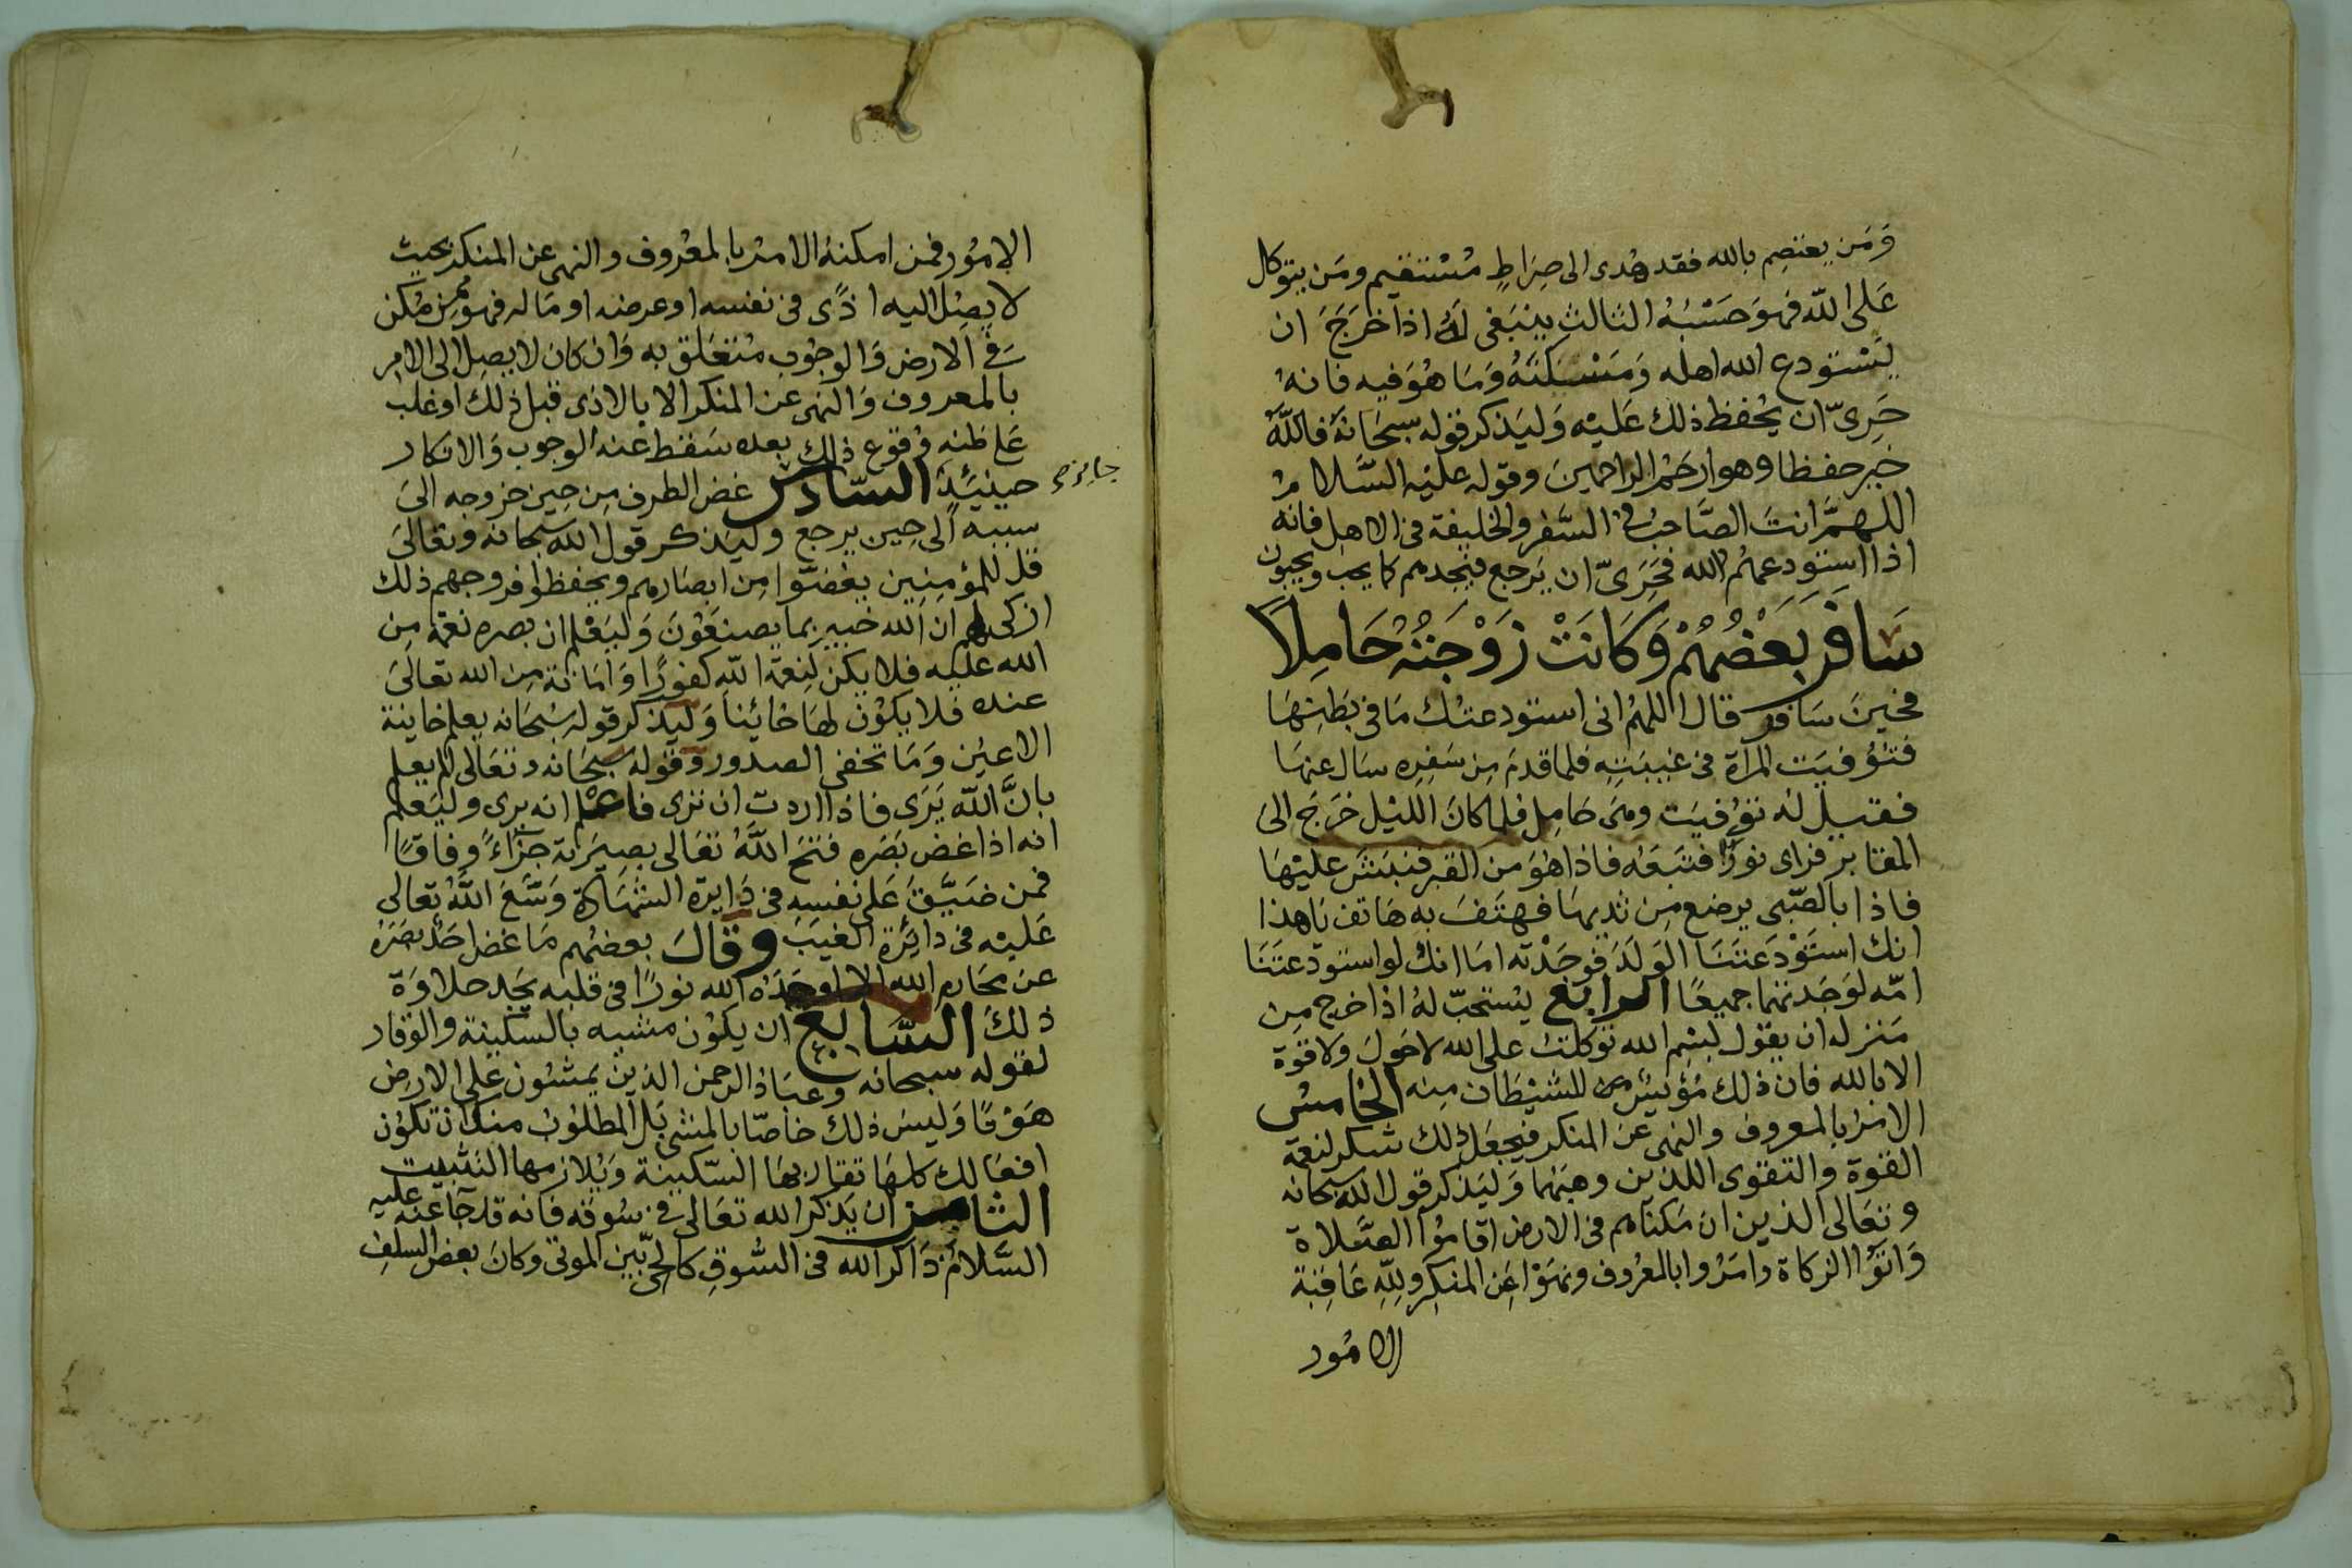 وَمَن يعتصم بالله فقد هُدى الى صِرَاطٍ مُسْتقيم ومَن يتوكل
عَلى الله فهوَ حَسْبُهُ الثالث ينبَغى لَهُ اذا خرَجَ ان
يَسْتودع الله اهله وَمَسْكنَهُ وَمَا هُوَ فيه فانهُ
حَرِىّ ان يُحْفظ ذلك عَليْه وَليَذكر قوله سبحَانهُ فاللّهُ
خير حفظا وهو ارحَمُ الراحمينَ وقوله عليْه السَّلامُ
اللهمَّ انتَ الصَّاحبُ فى السَّفر والخليفة فى الاهل فانه
اذا استودعهُم الله فحَرِىّ ان يَرجع فيَجدهم كما يحب ويحبون
سَافَرَ بَعْضُهُمْ وَكَانَتْ زَوْجَتُهُ حَامِلاً
فحينَ سَافر قال اللهمّ انى استودعتك مَا فى بَطنِهَا
فتُوُفيَت المرأة فى غيبَتِهِ فلما قدمَ مِن سَفرِه سَال عنهَا
فقيل له توُفيَت وهىَ حَامِل فلما كانَ الليْل خرَج الىَ
المقابر فراى نورًا فتبَعَه فاذا هُوَ من القبر فنبَش عليْهَا
فاذا بالصَّبى يرضع مِن ثديهَا فهَتَفَ به هَاتف يَا هذا
انك استَوْدَعتَنَا الوَلدَ فوَجَدْته امَا انك لو استودعتَنَا
امّه لوَجَدتهما جميعًا الرابع يُستحَبّ لهُ اذا خرج مِن
مَنزله ان يقول بسْم الله توكلتُ على الله لاحَول وَلا قوَة
الا بالله فان ذلك مُؤيسٌ للشيْطان مِنه الخامسُ
الامْرُ بالمعروف والنهى عَن المنكر فيجعَل ذلك شكر لنعمَة
القوة والتقوى اللذين وهبَهُما وَليَذكر قول الله سبحانه
وتعَالى الذين ان مَكناهم فى الارض اقامُوا الصَّلاة
وَاتوُا الزكاة وامَرُوا بالمعْرُوف ونهَوْا عَن المنكر وللّهِ عَاقِبَة
الامُور
الامُور فمن امكنهُ الامرُ بالمعْروف والنهى عن المنكر بحيث
لا يصِل اليه اذًى فى نفسه او عرضه او مَاله فهو ممن مُكن
فى الارض وَالوجُوب مُتعَلق به وَان كان لا يصل الى الامر
بالمعروف وَالنهى عن المنكر الا بالاذى قبل ذلك او غلب
عَلى ظنه وُقوع ذلك بعده سَقط عَنه الوجوب وَالانكار
جائز
حينئِذٍ السّادس غض الطرف مِن حين خروجه الىَ
سببه الى حِين يرجع وليَذكر قول الله سبحانه وتعَالىَ
قل للمؤمِنِين يغضوا مِن ابصَارهم ويحفظوا فروجهم ذلك
ازكى لهم ان الله خبير بما يصنعُونَ وَليَعْلم ان بصره نعمَة مِن
الله عليه فلا يكن لِنعمَة اللّه كفورًا وَامَانة مِن الله تعَالىَ
عنده فلا يكوُن لهَا خائنا وَليَذكر قوله سُبحَانه يعلم خاينة
الاعيُن وَمَا تخفى الصدور وَقوله سبحَانه وتعَالى الم يعلم
بانَّ اللّه يَرَى فاذا اردت ان ترى فاعْلم انه يرى وليَعلم
انه اذا غض بَصَره فتحَ اللّهُ تعَالى بصِيرَته جزَاءً وفاقًا
فمن ضيَّقَ عَلى نفسه فى دَايرة الشهَادة وَسَّعَ اللَّهُ تعالى
عَليْه فى دائرَة الغيَب وقالَ بعضهُم مَا غض احَد بصَرَهُ
عن محَارم الله الا اوجَدَهُ الله نورًا فى قلبه يَجد حلاوَة
ذلك السَّابع ان يكوُن مشيه بالسكينة والوقار
لقوله سبحانه وعبَاد الرحمن الذين يمشون على الارض
هَوْنًا وَليسَ ذلك خاصّا بالمشى بَل المطلوُب منك ان تكوُن
افعَالك كلهَا تقارنهَا السّكينة وَيلازمها التثبيت
الثامن ان يَذكر الله تعَالى فى سُوقه فانه قد جَا عنه عليه
السَّلامُ ذَاكر الله فى السُّوقِ كالحىّ بين الموتى وكانَ بعض السلفِ